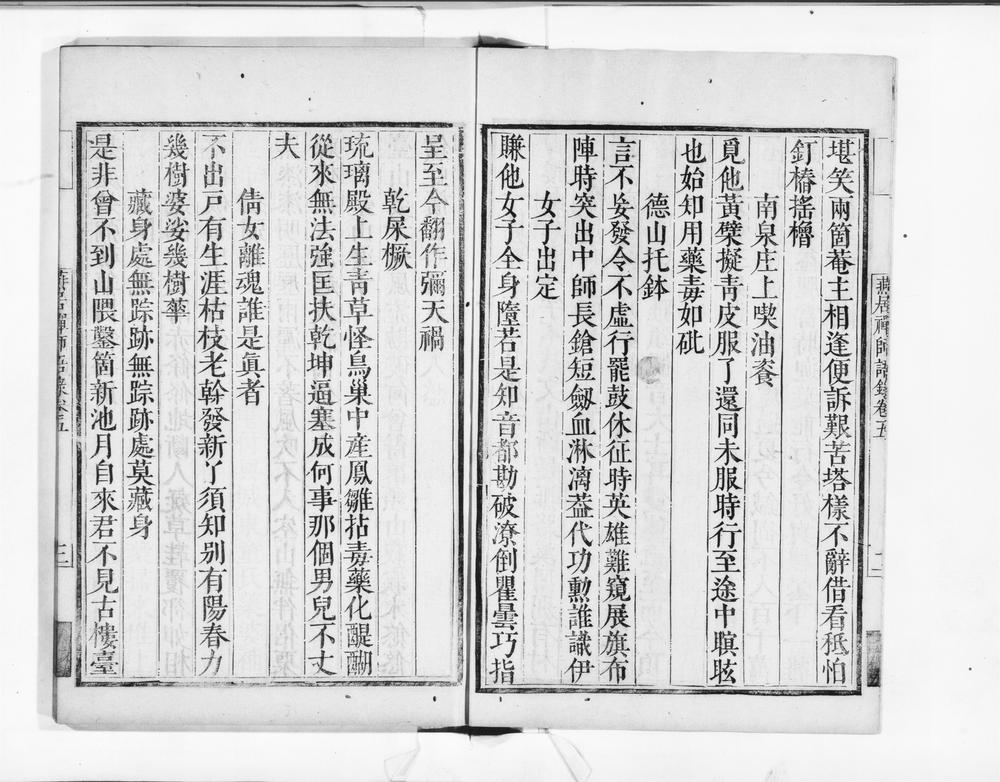 堪笑兩箇菴主相逢便訴艱苦塔樣不辭借看秪怕
釘樁搖櫓
南泉庄上喫油餈
覓他黃檗擬青皮服了還同未服時行至途中瞑眩
也始知用藥毒如砒
德山托鉢
言不妄發令不虛行罷鼓休征時英雄難窺展旗布
陣時突出中師長鎗短劒血淋漓葢代功勲誰識伊
女子出定
賺他女子全身墮若是知音都勘破潦倒瞿曇巧指
燕居禪師語錄卷五
二
呈至今翻作彌天禍
乾屎橛
琉璃殿上生青草怪鳥巢中産鳳雛拈毒藥化醍醐
從來無法強匡扶乾坤逼塞成何事那個男兒不丈
夫
倩女離魂誰是眞者
不出戸有生涯枯枝老幹發新丫須知别有陽春力
幾樹婆娑幾樹華
藏身處無踪跡無踪跡處莫藏身
是非曾不到山隈鑿箇新池月自來君不見古樓臺
燕居禪師語錄卷五
三